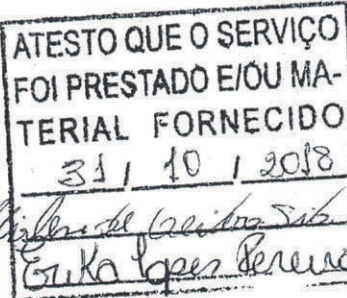 ATESTO QUE O SERVIÇO
FOI PRESTADO E/OU MA-
TERIAL FORNECIDO
31 / 10 / 2018
de Silva
Erika Lopes Pereira